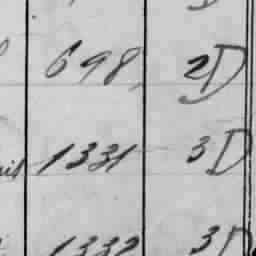 698 2D
1331 3D
1332 3D